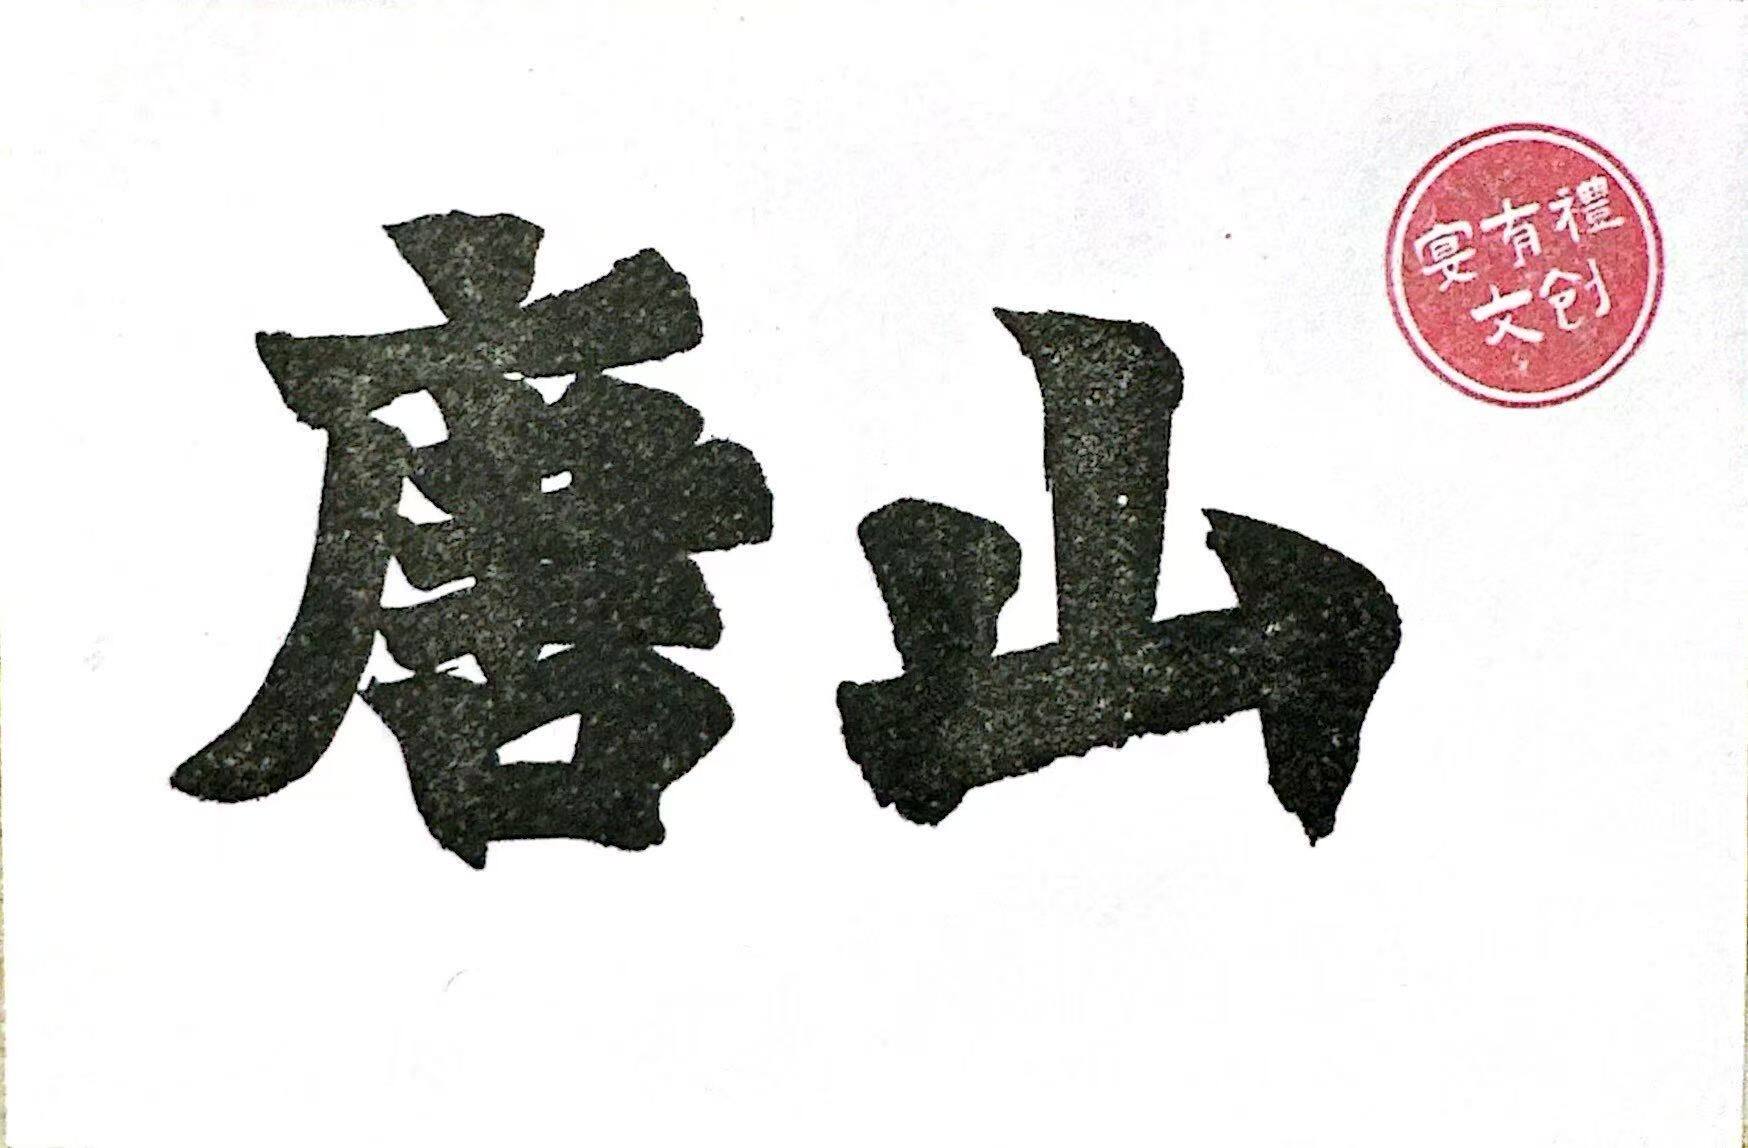 唐山
宴有禮
文创